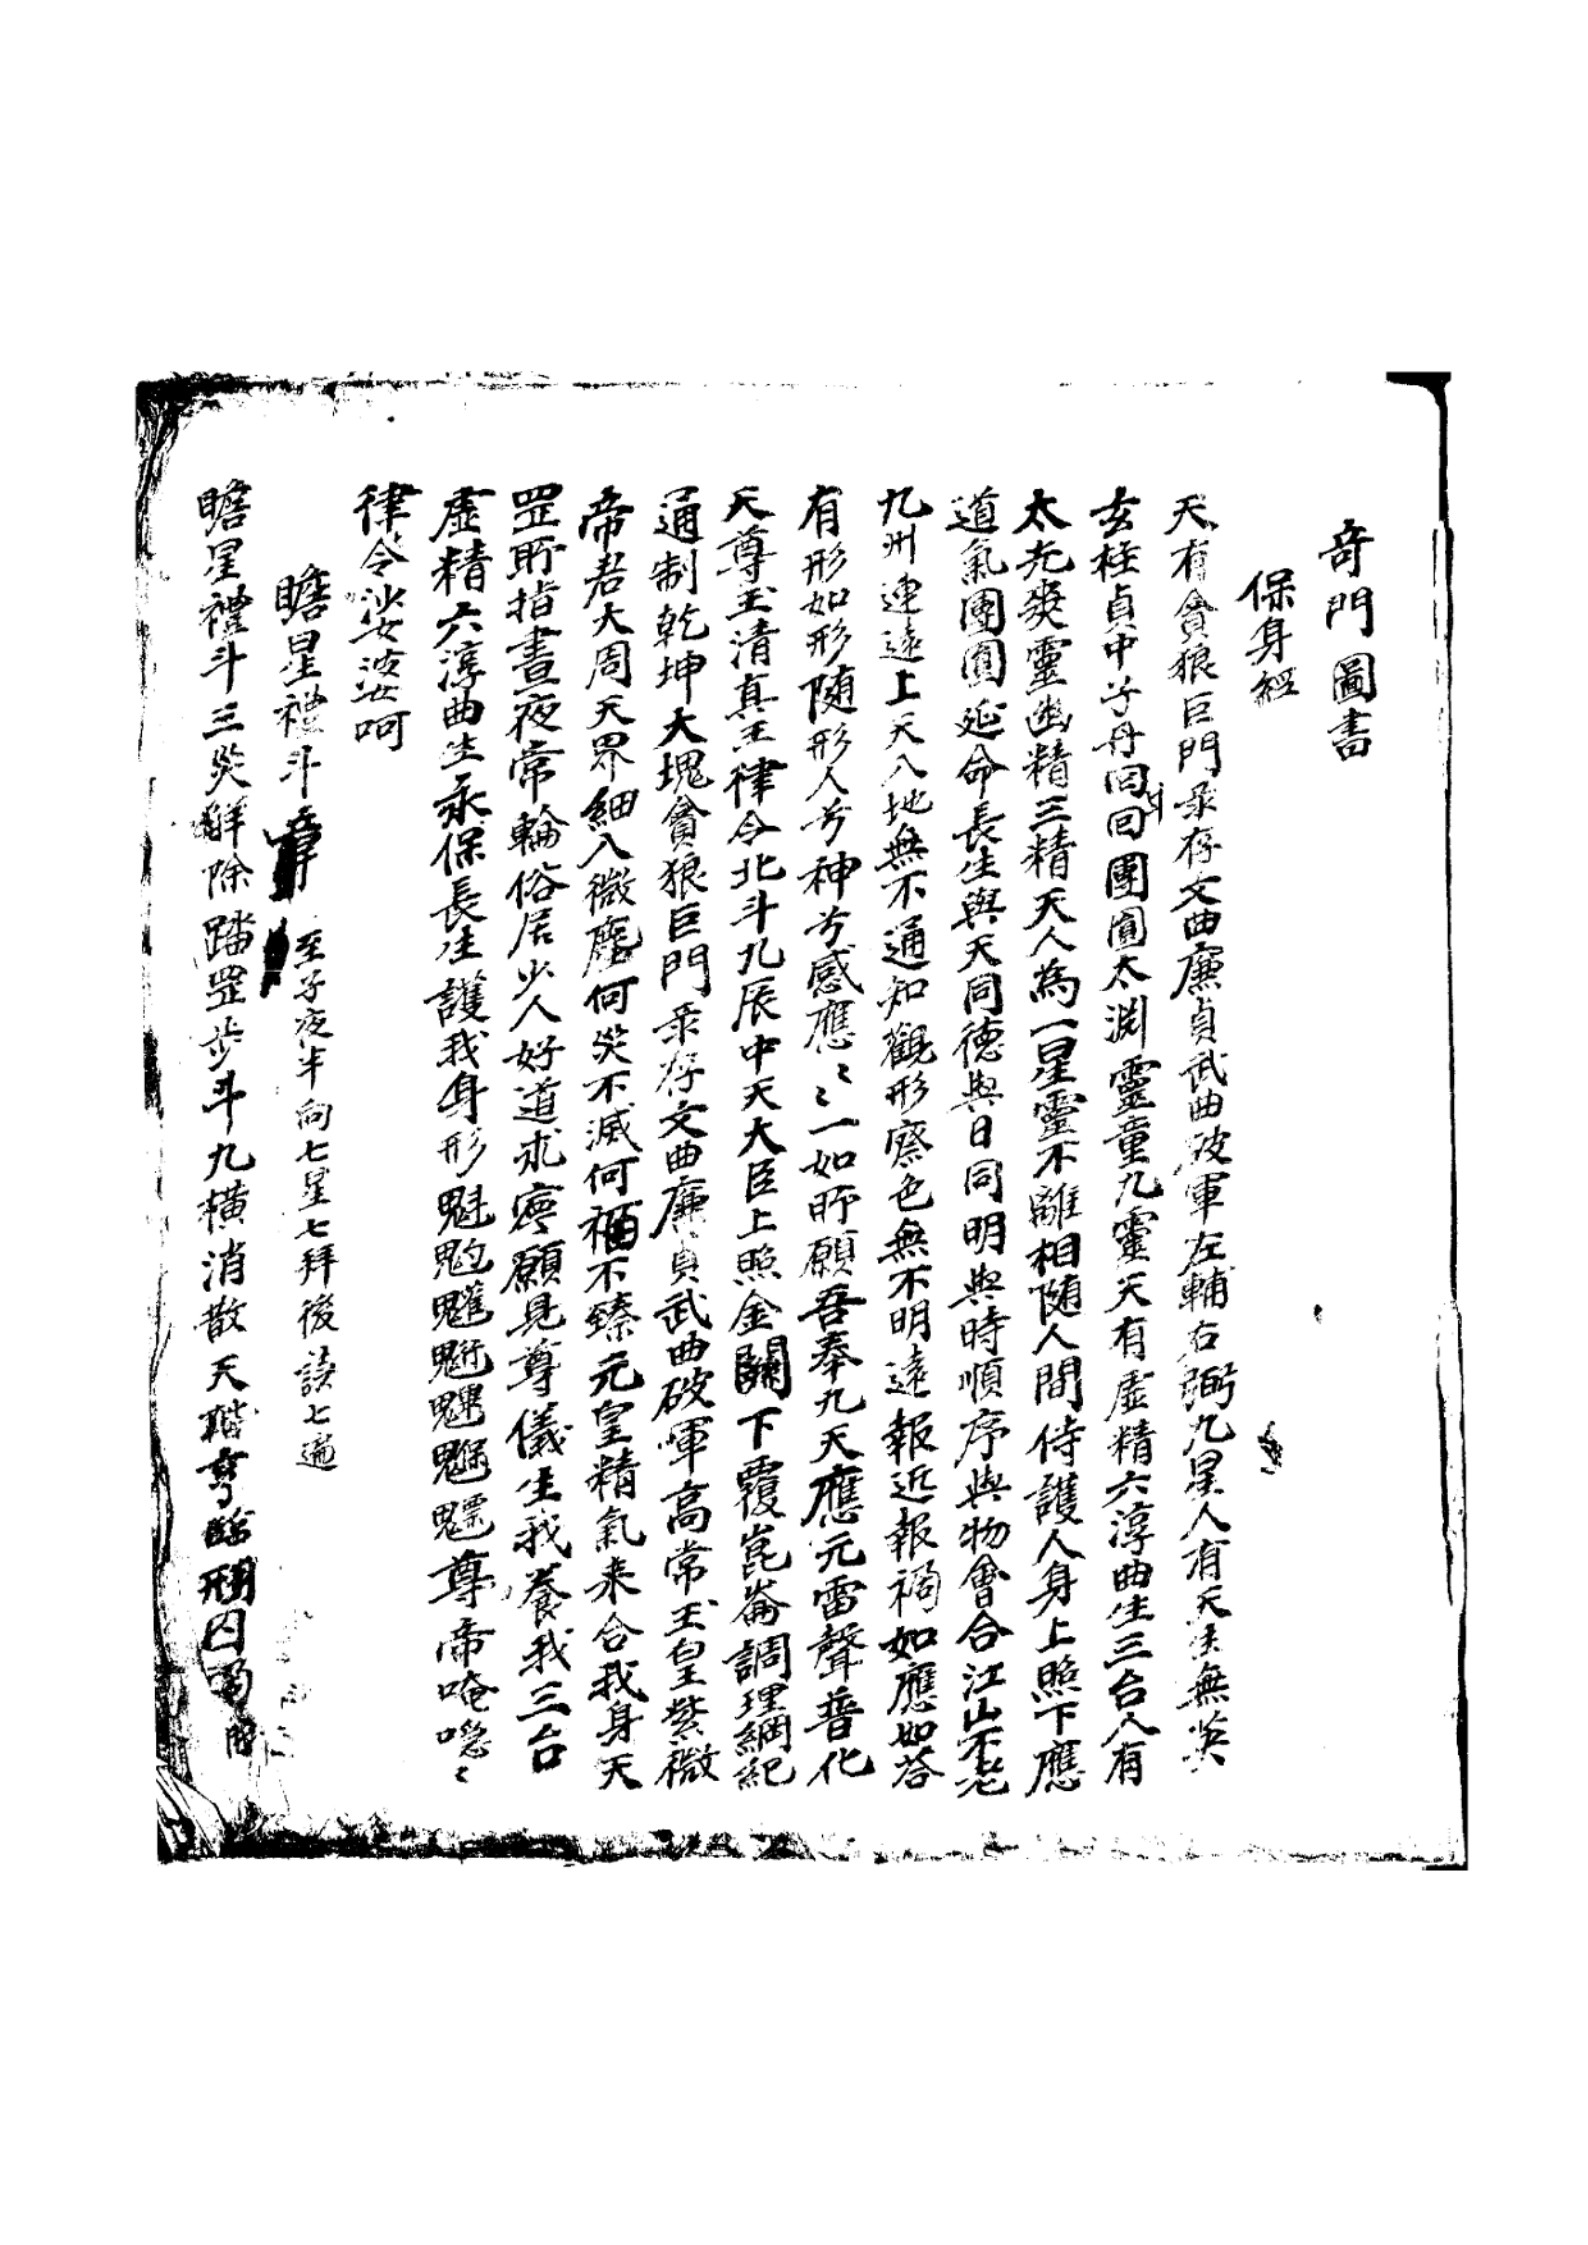 奇門圖書
保身經
天有貪狼巨門彔存文曲廉貞武曲破軍左輔右弼九星人有天生無英
玄柱貞中子丹回回團圓太渊靈童九靈天有虛精六淳曲生三台人有
太光爽靈幽精三精天人為一星靈不離相随人間侍護人身上照下應
道氣團圓延命長生與天同德與日同明與時順序與物會合江山不老
九州連遠上天入地無不通知觀形察色無不明遠報近報禍如應如荅
有形如形随形人兮神兮感應〻〻一如所願吾奉九天應元雷聲普化
天尊玉清真王律令北斗九辰中天大臣上照金闕下覆崑崙調理綱紀
通制乾坤大塊貪狼巨門彔存文曲廉貞武曲破軍高常玉皇紫微
帝君大周天界細入微塵何災不滅何福不臻元皇精氣来合我身天
罡所指晝夜常輪俗居少人好道求灵願見尊儀生我養我三台
虛精六淳曲生永保長生護我身形魁𩲃𩳐𩲃魓𩳐魒尊帝唵噁〻
律令娑婆呵
瞻星禮斗章 至子夜半向七星七拜後讀七遍
瞻星禮斗三災解除踏罡步斗九横消散天